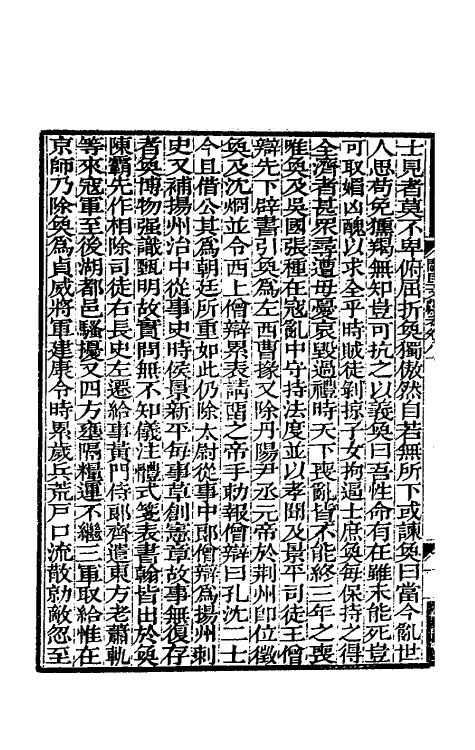 士見者莫不卑俯屈折奐獨傲然自若無所下或諫奐曰當今亂世
人思苟免獯羯無知豈可抗之以義奐曰吾性命有在雖未能死豈
可取媚凶醜以求全乎時賊徒剝掠子女拘逼士庶奐每保持之得
全濟者甚衆尋遭母憂哀毀過禮時天下喪亂皆不能終三年之喪
唯奐及吳國張種在寇亂中守持法度並以孝聞及景平司徒王僧
辯先下辟書引奐爲左西曹掾又除丹陽尹丞元帝於荆州卽位徵
奐及沈烱並令西上僧辯累表請留之帝手勑報僧辯曰孔沈二士
今且借公其爲朝廷所重如此仍除太尉從事中郎僧辯爲揚州刺
史又補揚州治中從事史時侯景新平每事草創憲章故事無復存
者奐博物强識甄明故實問無不知儀注體式箋表書翰皆出於奐
陳霸先作相除司徒右長史左遷給事黃門侍郎齊遣東方老蕭軌
等來寇軍至後湖都邑騷擾又四方壅隔糧運不繼三軍取給惟在
京師乃除奐爲貞威將軍建康令時累歲兵荒戸口流散勍敵忽至